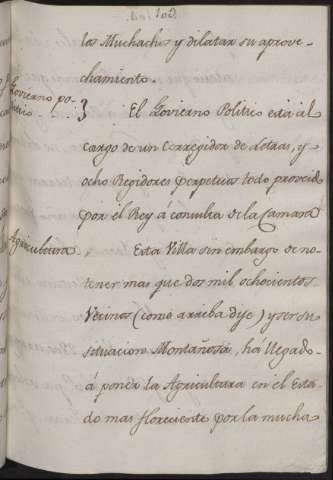 los Muchachos y dilatar su aprove-
chamiento.
Govierno po-
litico . . . }
El Govierno Politico está al
cargo de un Corregidor de Letras, y
ocho Regidores perpetuos todo proveido
por el Rey á consulta de la Camara
Agricultura,
Esta Villa sin embargo de no-
tener mas que dos mil ochocientos
Vecinos (como arriba dije) y ser su
situacion Montañosa, há llegado
á poner la Agricultura en el Esta-
do mas floreciente por la mucha